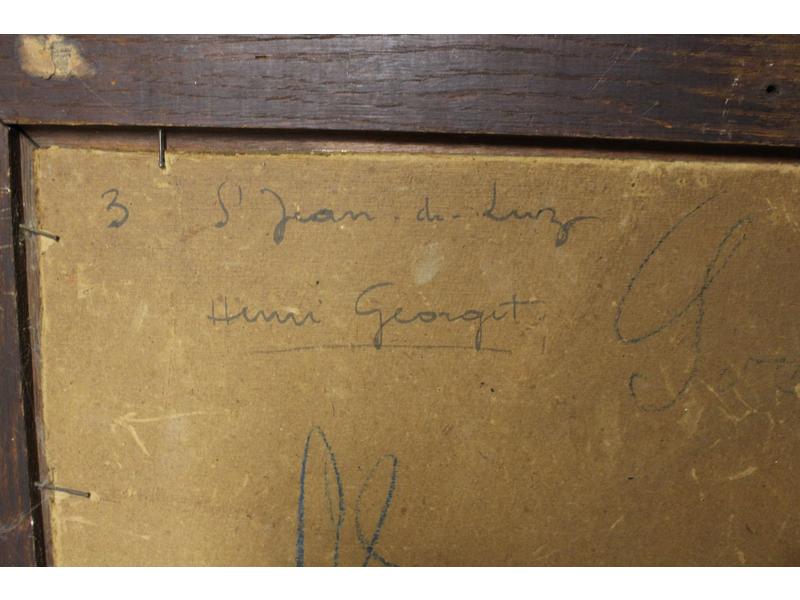 3 S' Jean-de-Luz
Henri Georget